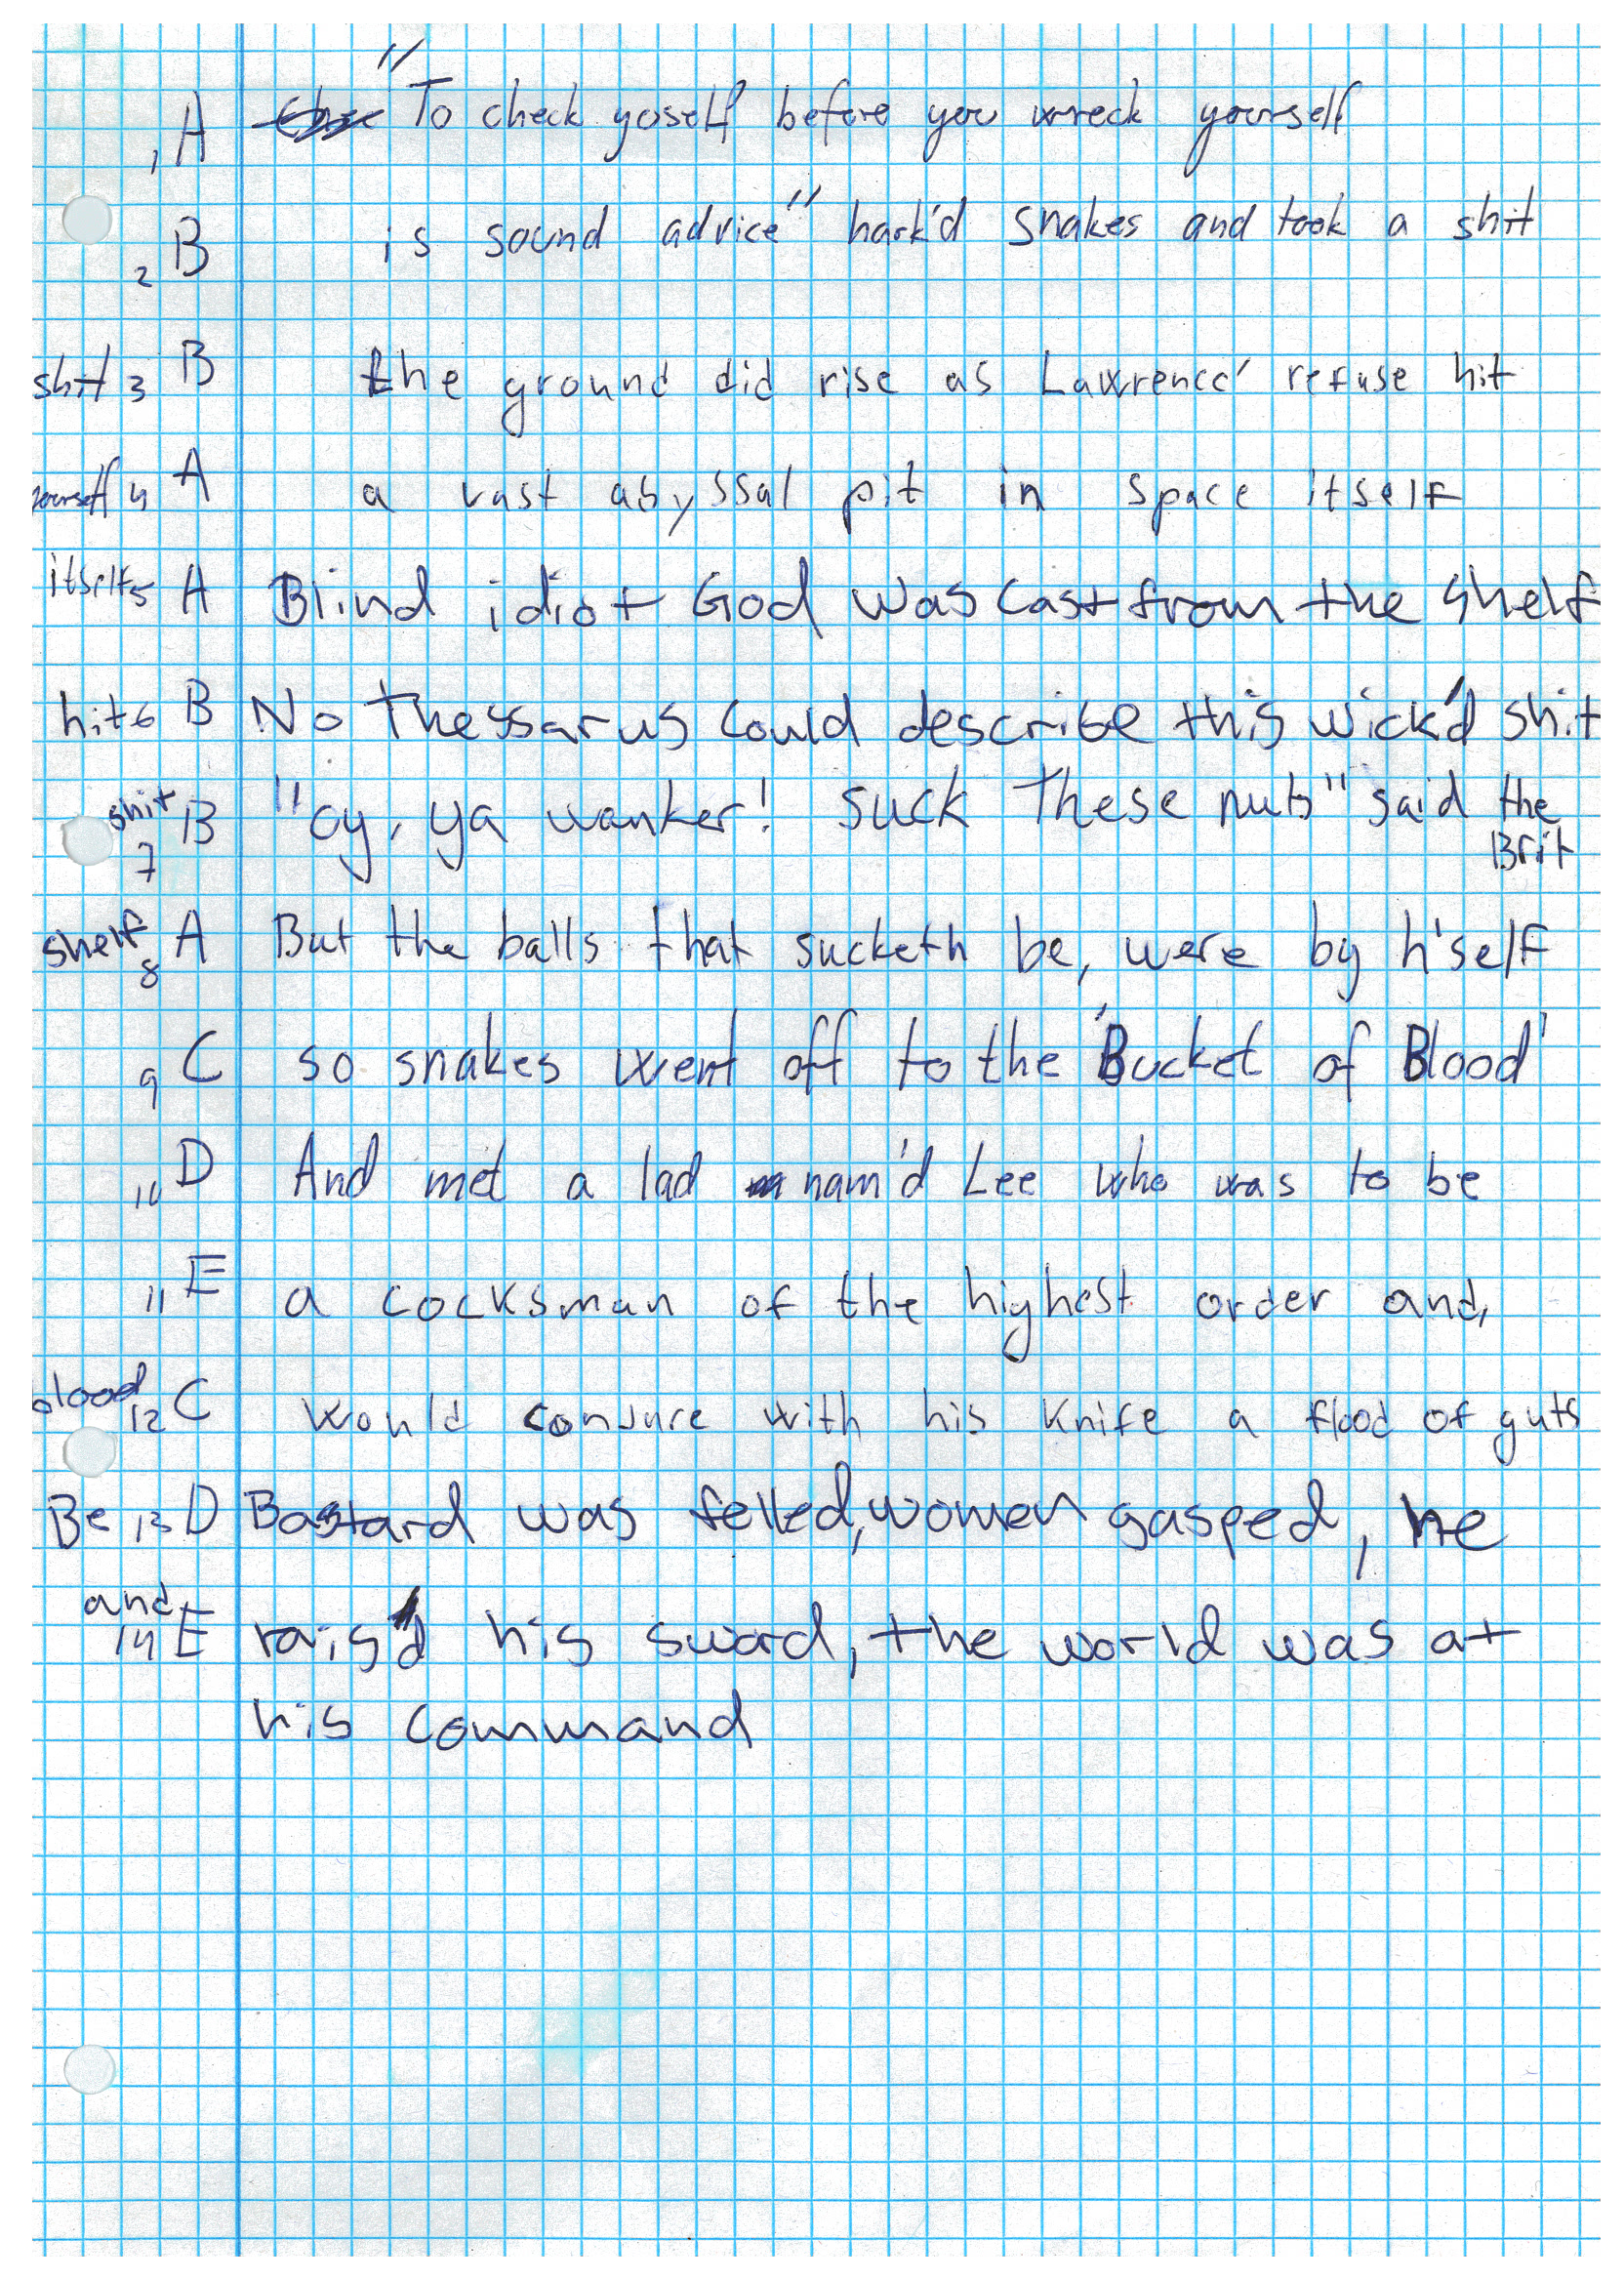 1 A "To check yoself before you wreck yourself
2 B is sound advice" hark'd snakes and took a shit
shit 3 B the ground did rise as Lawrence' refuse hit
yourself 4 A a vast abyssal pit in space itself
itself 5 A Blind idiot God was cast from the shelf
hit 6 B No Thessarus could describe this wick'd shit
shit 7 B "oy, ya wanker! suck these nuts" said the
Brit
shelf 8 A But the balls that sucketh be, were by h'self
9 C so snakes went off to the 'Bucket of Blood'
10 D And met a lad nam'd Lee who was to be
11 E a cocksman of the highest order and,
blood 12 C would conjure with his knife a flood of guts
Be 13 D Bastard was felled, women gasped, he
and 14 E rais'd his sword, the world was at
his command